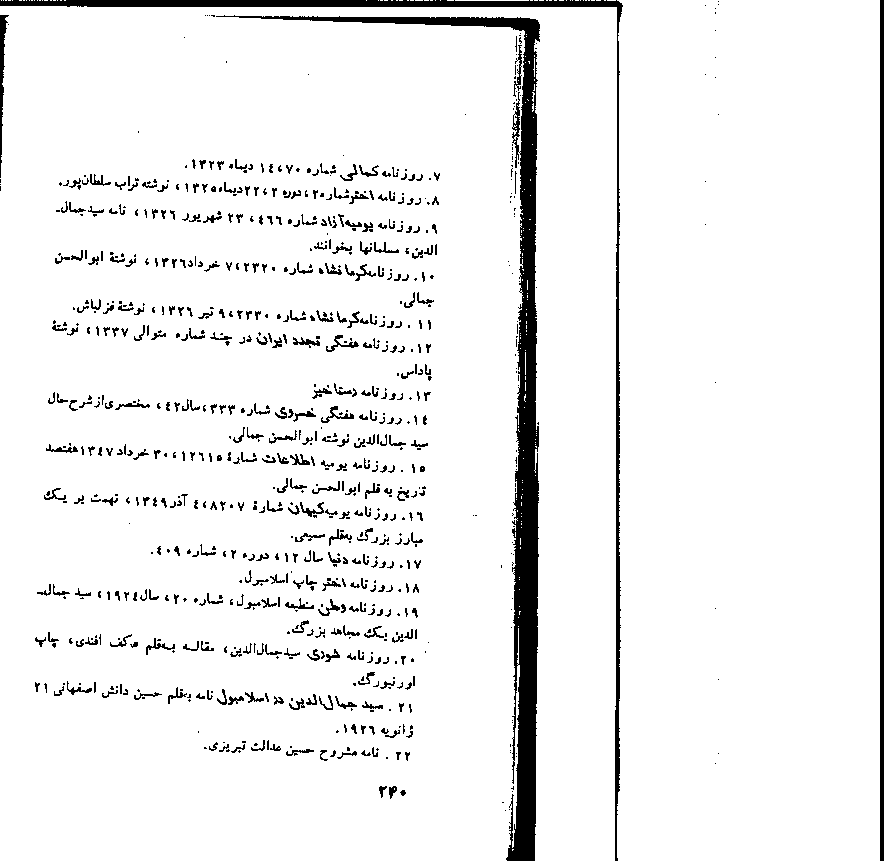 ۷. روزنامه کمالی شماره ۷۰، ۱۴ دیماه ۱۳۲۳.
۸. روزنامه اختر شماره ۲۰، دوره ۲، ۲۲ دیماه ۱۳۲۵، نوشته تراب سلطان‌پور.
۹. روزنامه یومیه آزاد شماره ۴۶۶، ۲۳ شهریور ۱۳۲۶، نامه سید جمال‌ـ
الدین، مسلمانها بخوانند.
۱۰. روزنامه کرمانشاه شماره ۲۳۲۰، ۷ خرداد ۱۳۲۶، نوشتهٔ ابوالحسن
جمالی.
۱۱. روزنامه کرمانشاه شماره ۲۳۳۰، ۹ تیر ۱۳۲۶، نوشتهٔ قزلباش.
۱۲. روزنامه هفتگی تجدد ایران در چند شماره متوالی ۱۳۳۷، نوشتهٔ
پاداس.
۱۳. روزنامه رستاخیز
۱۴. روزنامه هفتگی خسروی شماره ۳۳۳، سال ۴۲، مختصری از شرح حال
سید جمال‌الدین نوشته ابوالحسن جمالی.
۱۵. روزنامه یومیه اطلاعات شمارهٔ ۱۲۶۱۵، ۳۰ خرداد ۱۳۴۷ هفتصد
تاریخ به قلم ابوالحسن جمالی.
۱۶. روزنامه یومیه کیهان شمارهٔ ۸۲۰۷، ۴ آذر ۱۳۴۹، تهمت بر یک
مبارز بزرگ به‌قلم سمیعی.
۱۷. روزنامه دنیا سال ۱۲، دوره ۲، شماره ۴۰۹.
۱۸. روزنامه اختر چاپ اسلامبول.
۱۹. روزنامه وطن منطبعه اسلامبول، شماره ۲۰، سال ۱۹۲۴، سید جمال‌ـ
الدین یک مجاهد بزرگ.
۲۰. روزنامه شوری سید جمال‌الدین، مقاله به‌قلم عکف افندی، چاپ
اورنبورگ.
۲۱. سید جمال‌الدین در اسلامبول نامه به‌قلم حسین دانش اصفهانی ۲۱
ژانویه ۱۹۲۶.
۲۲. نامه مشروح حسین عدالت تبریزی.
۲۴۰